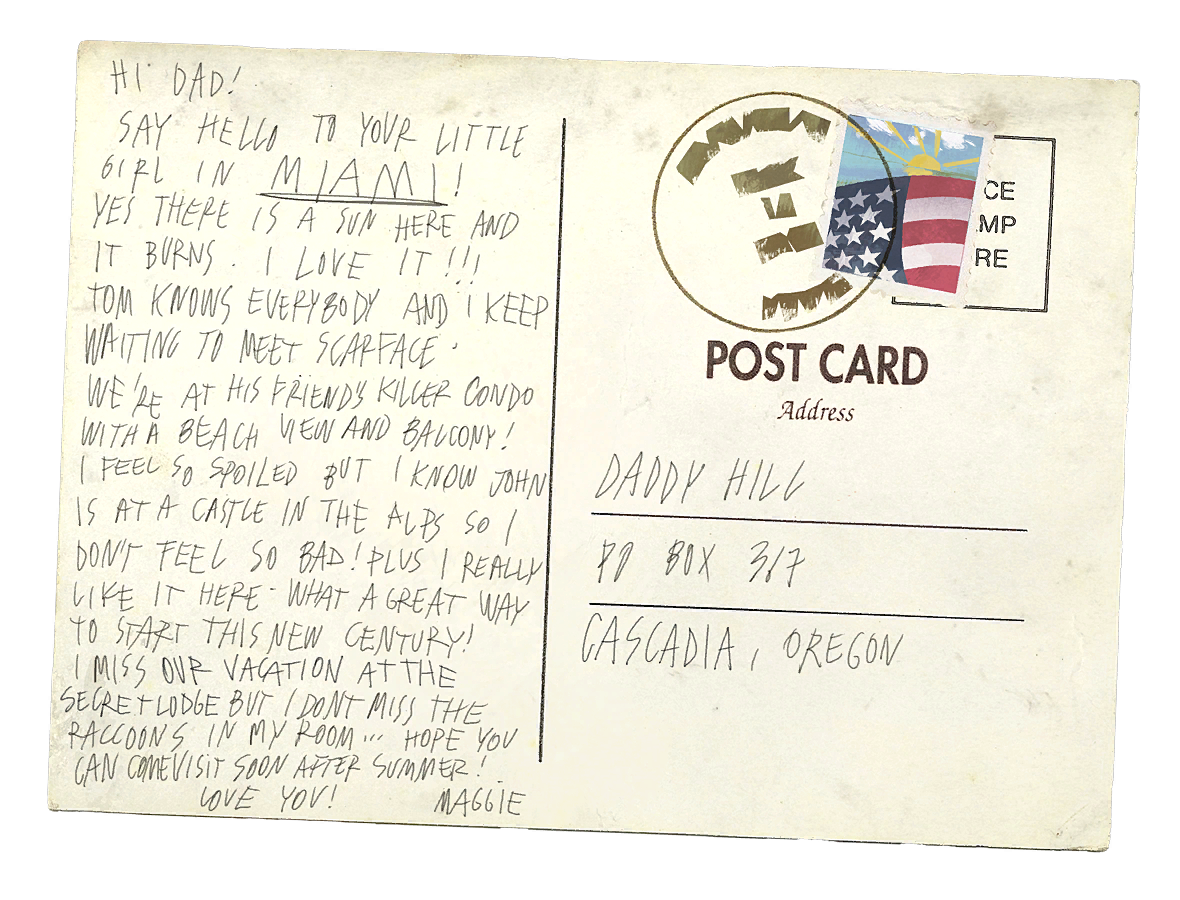 HI DAD!
SAY HELLO TO YOUR LITTLE
GIRL IN MIAMI!
YES THERE IS A SUN HERE AND
IT BURNS. I LOVE IT!!!
TOM KNOWS EVERYBODY AND I KEEP
WAITING TO MEET SCARFACE.
WE'RE AT HIS FRIENDS KILLER CONDO
WITH A BEACH VIEW AND BALCONY!
I FEEL SO SPOILED BUT I KNOW JOHN
IS AT A CASTLE IN THE ALPS SO I
DON'T FEEL SO BAD! PLUS I REALLY
LIKE IT HERE. WHAT A GREAT WAY
TO START THIS NEW CENTURY!
I MISS OUR VACATION AT THE
SECRET LODGE BUT I DONT MISS THE
RACCOONS IN MY ROOM... HOPE YOU
CAN COME VISIT SOON AFTER SUMMER!
LOVE YOU! MAGGIE
CE
MP
RE
POST CARD
Address
DADDY HILL
PO BOX 317
CASCADIA, OREGON